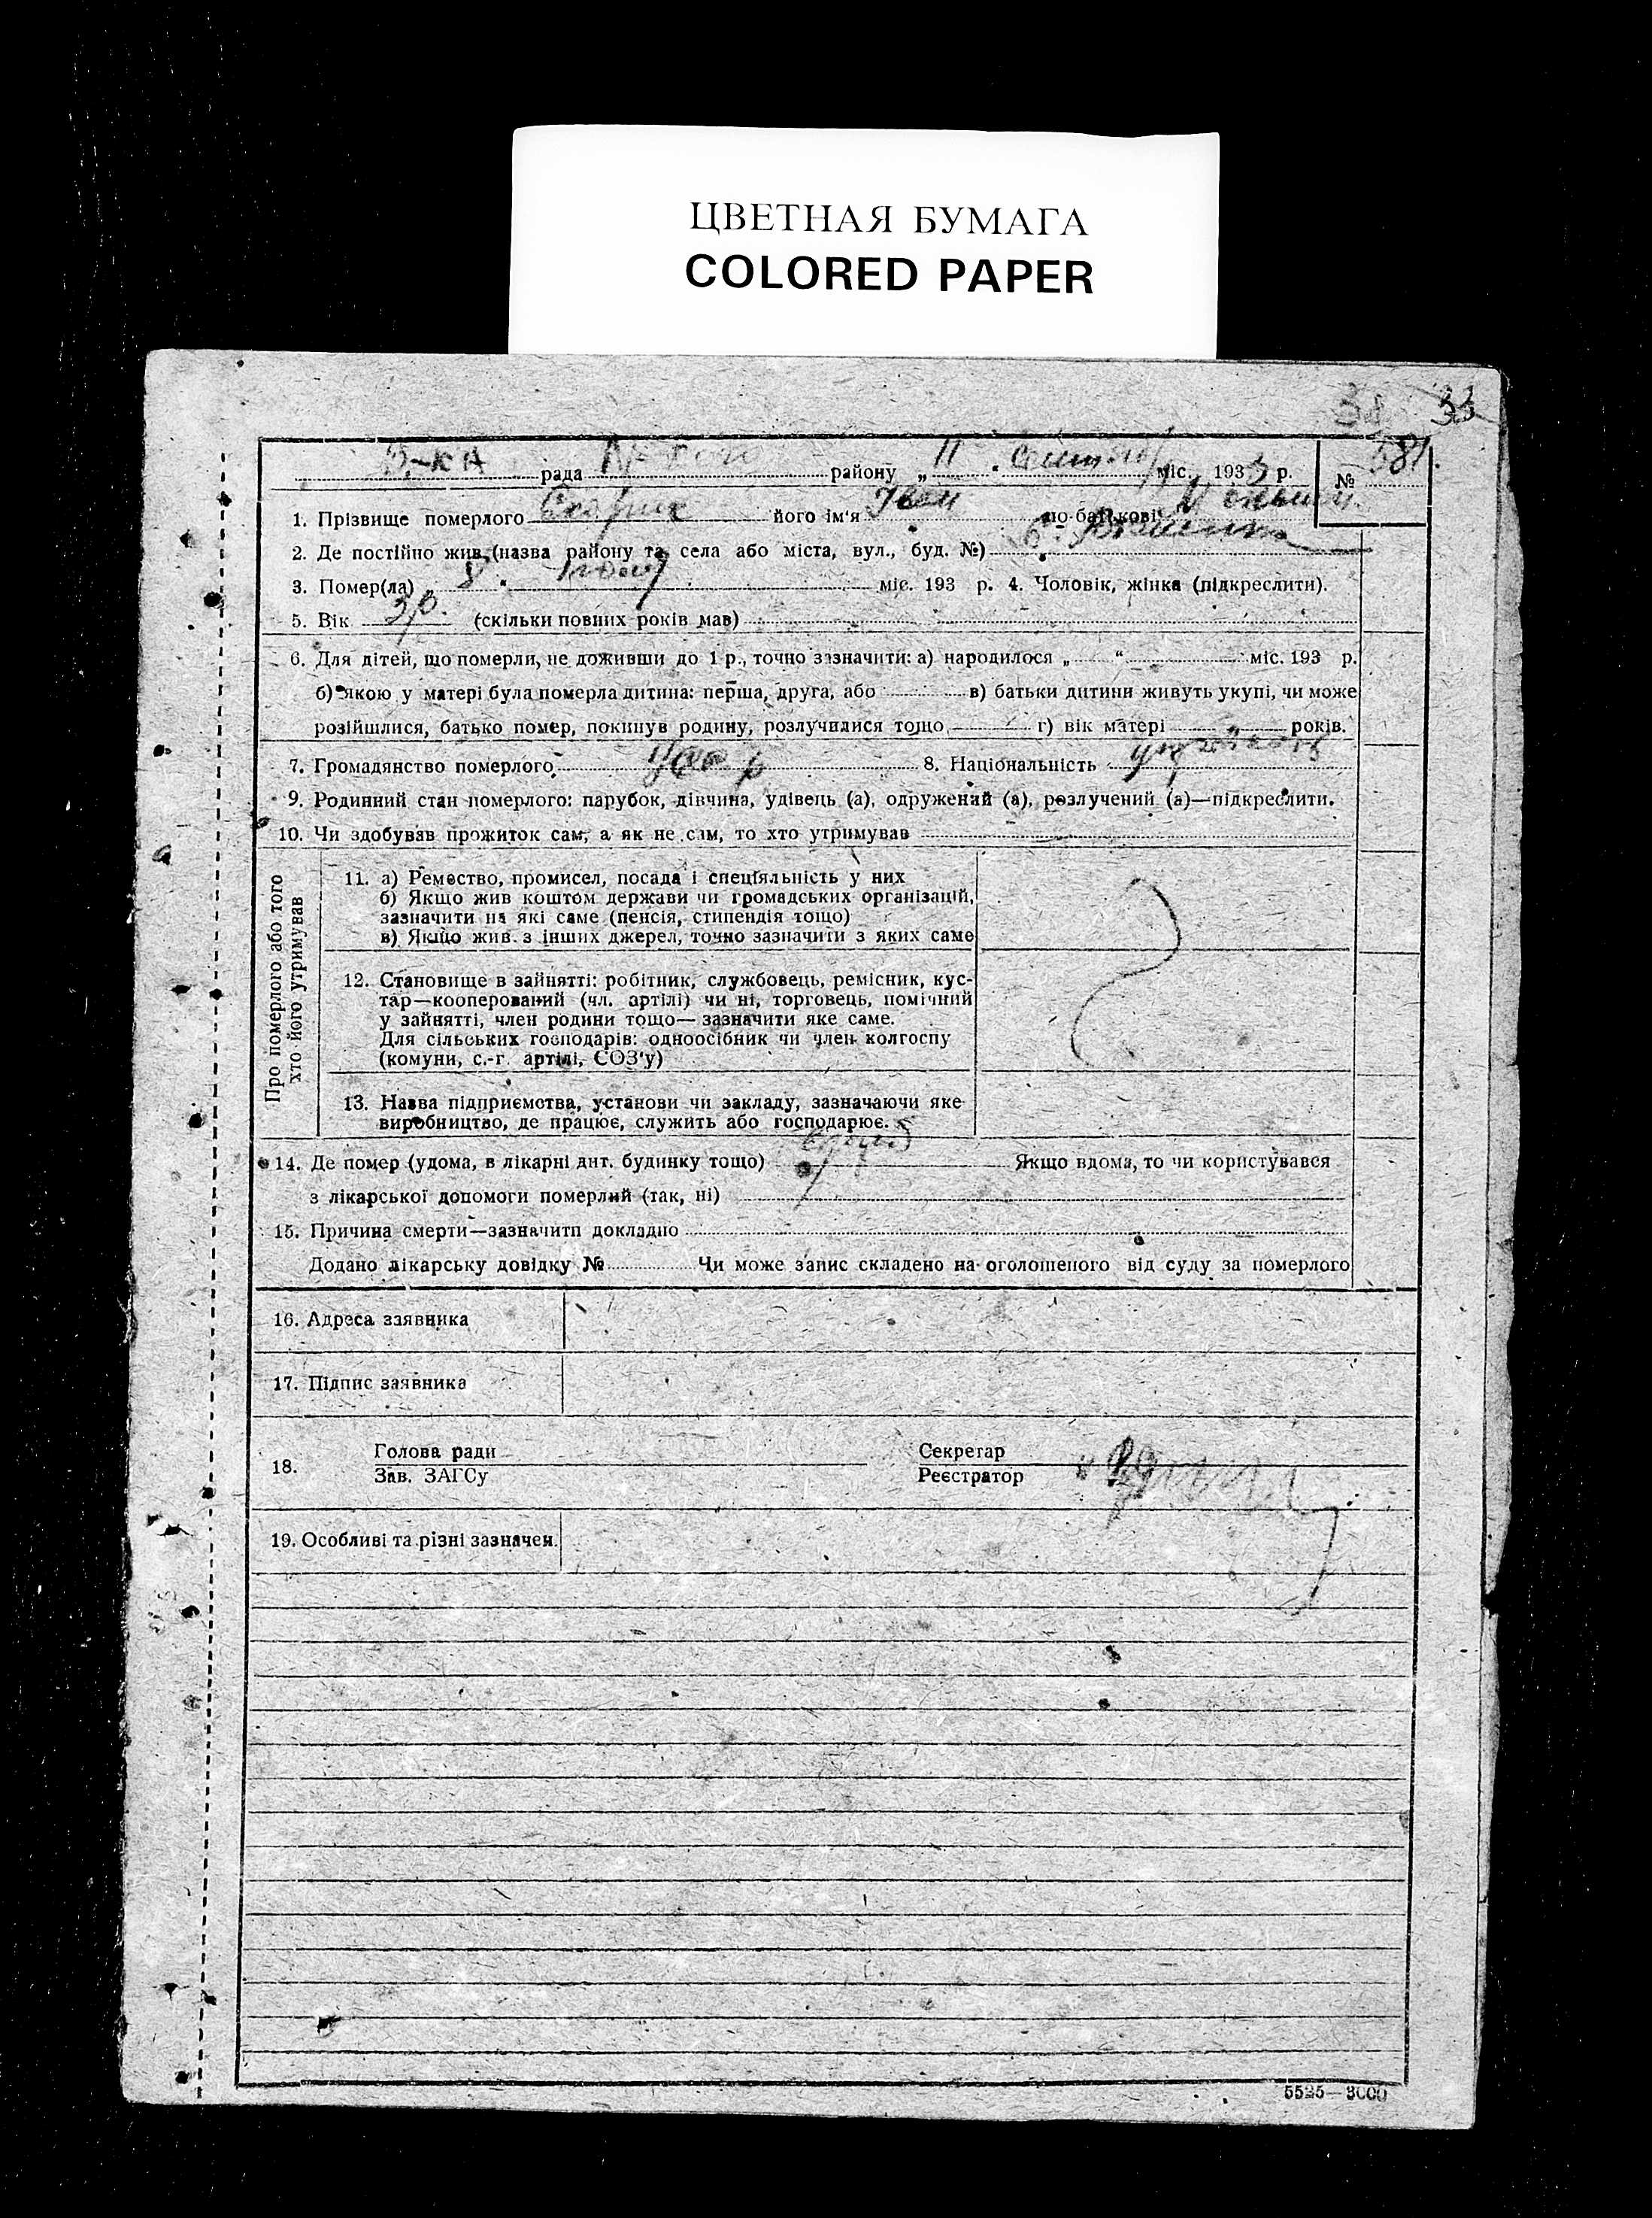 ЦВЕТНАЯ БУМАГА
COLORED PAPER
38 33
рада району „ 11 " міс. 1933 р. № 581.
1. Прізвище померлого його ім'я Іван по батькові
2. Де постійно жив (назва району та села або міста, вул., буд. №)
3. Помер(ла) „ 8 " міс. 193 р. 4. Чоловік, жінка (підкреслити).
5. Вік (скільки повних років мав)
6. Для дітей, що померли, не доживши до 1 р., точно зазначити: а) народилося „ " міс. 193 р.
б) якою у матері була померла дитина: перша, друга, або в) батьки дитини живуть укупі, чи може
розійшлися, батько помер, покинув родину, розлучилися тощо г) вік матері років.
7. Громадянство померлого 8. Національність
9. Родинний стан померлого: парубок, дівчина, удівець (а), одружений (а), розлучений (а)—підкреслити.
10. Чи здобував прожиток сам, а як не сам, то хто утримував
Про померлого або того
хто його утримував
11. а) Ремество, промисел, посада і спеціяльність у них
б) Якщо жив коштом держави чи громадських організацій,
зазначити на які саме (пенсія, стипендія тощо)
в) Якщо жив з інших джерел, точно зазначити з яких саме
12. Становище в зайнятті: робітник, службовець, ремісник, кус-
тар—кооперований (чл. артілі) чи ні, торговець, помічний
у зайнятті, член родини тощо— зазначити яке саме.
Для сільських господарів: одноосібник чи член колгоспу
(комуни, с.-г. артілі, СОЗ'у)
13. Назва підприємства, установи чи закладу, зазначаючи яке
виробництво, де працює, служить або господарює.
14. Де помер (удома, в лікарні дит. будинку тощо) Якщо вдома, то чи користувався
з лікарської допомоги померлий (так, ні)
15. Причина смерти—зазначити докладно
Додано лікарську довідку № Чи може запис складено на оголошеного від суду за померлого
16. Адреса заявника
17. Підпис заявника
18. Голова ради Секретар
Зав. ЗАГСу Реєстратор
19. Особливі та різні зазначен.
5525—3000